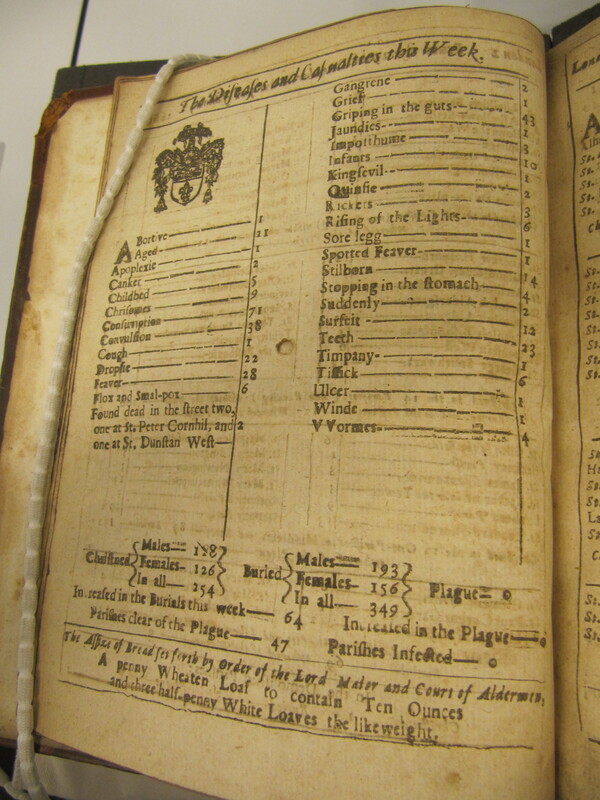 The Diſeaſes and Caſualties this Week.
ABortive — 1
Aged — 21
Apoplexie — 1
Canker — 2
Childbed — 5
Chriſomes — 9
Conſumption — 71
Convulſion — 38
Cough — 1
Dropſie — 22
Feaver — 28
Flox and Smal-pox — 6
Found dead in the ſtreet two,
one at St. Peter Cornhil, and 2
one at St. Dunſtan Weſt —
Gangrene — 2
Grief — 1
Griping in the guts — 43
Jaundies — 1
Impoſthume — 3
Infants — 10
Kingſevil — 1
Quinſie — 2
Rickets — 3
Riſing of the Lights — 6
Sore legg — 1
Spotted Feaver — 1
Stilborn — 14
Stopping in the ſtomach — 4
Suddenly — 2
Surfeit — 12
Teeth — 23
Timpany — 1
Tiſſick — 6
Ulcer — 1
Winde — 1
VVormes — 4
Chriſtned { Males — 128 Females — 126 In all — 254 }
Buried { Males — 193 Females — 156 In all — 349 }
Plague — 0
Increaſed in the Burials this week — 64
Increaſed in the Plague — 0
Pariſhes clear of the Plague — 47
Pariſhes Infected — 0
The Aſſize of Bread ſet forth by Order of the Lord Maior and Court of Aldermen,
A penny Wheaten Loaf to contain Ten Ounces
and three half-penny White Loaves the like weight.